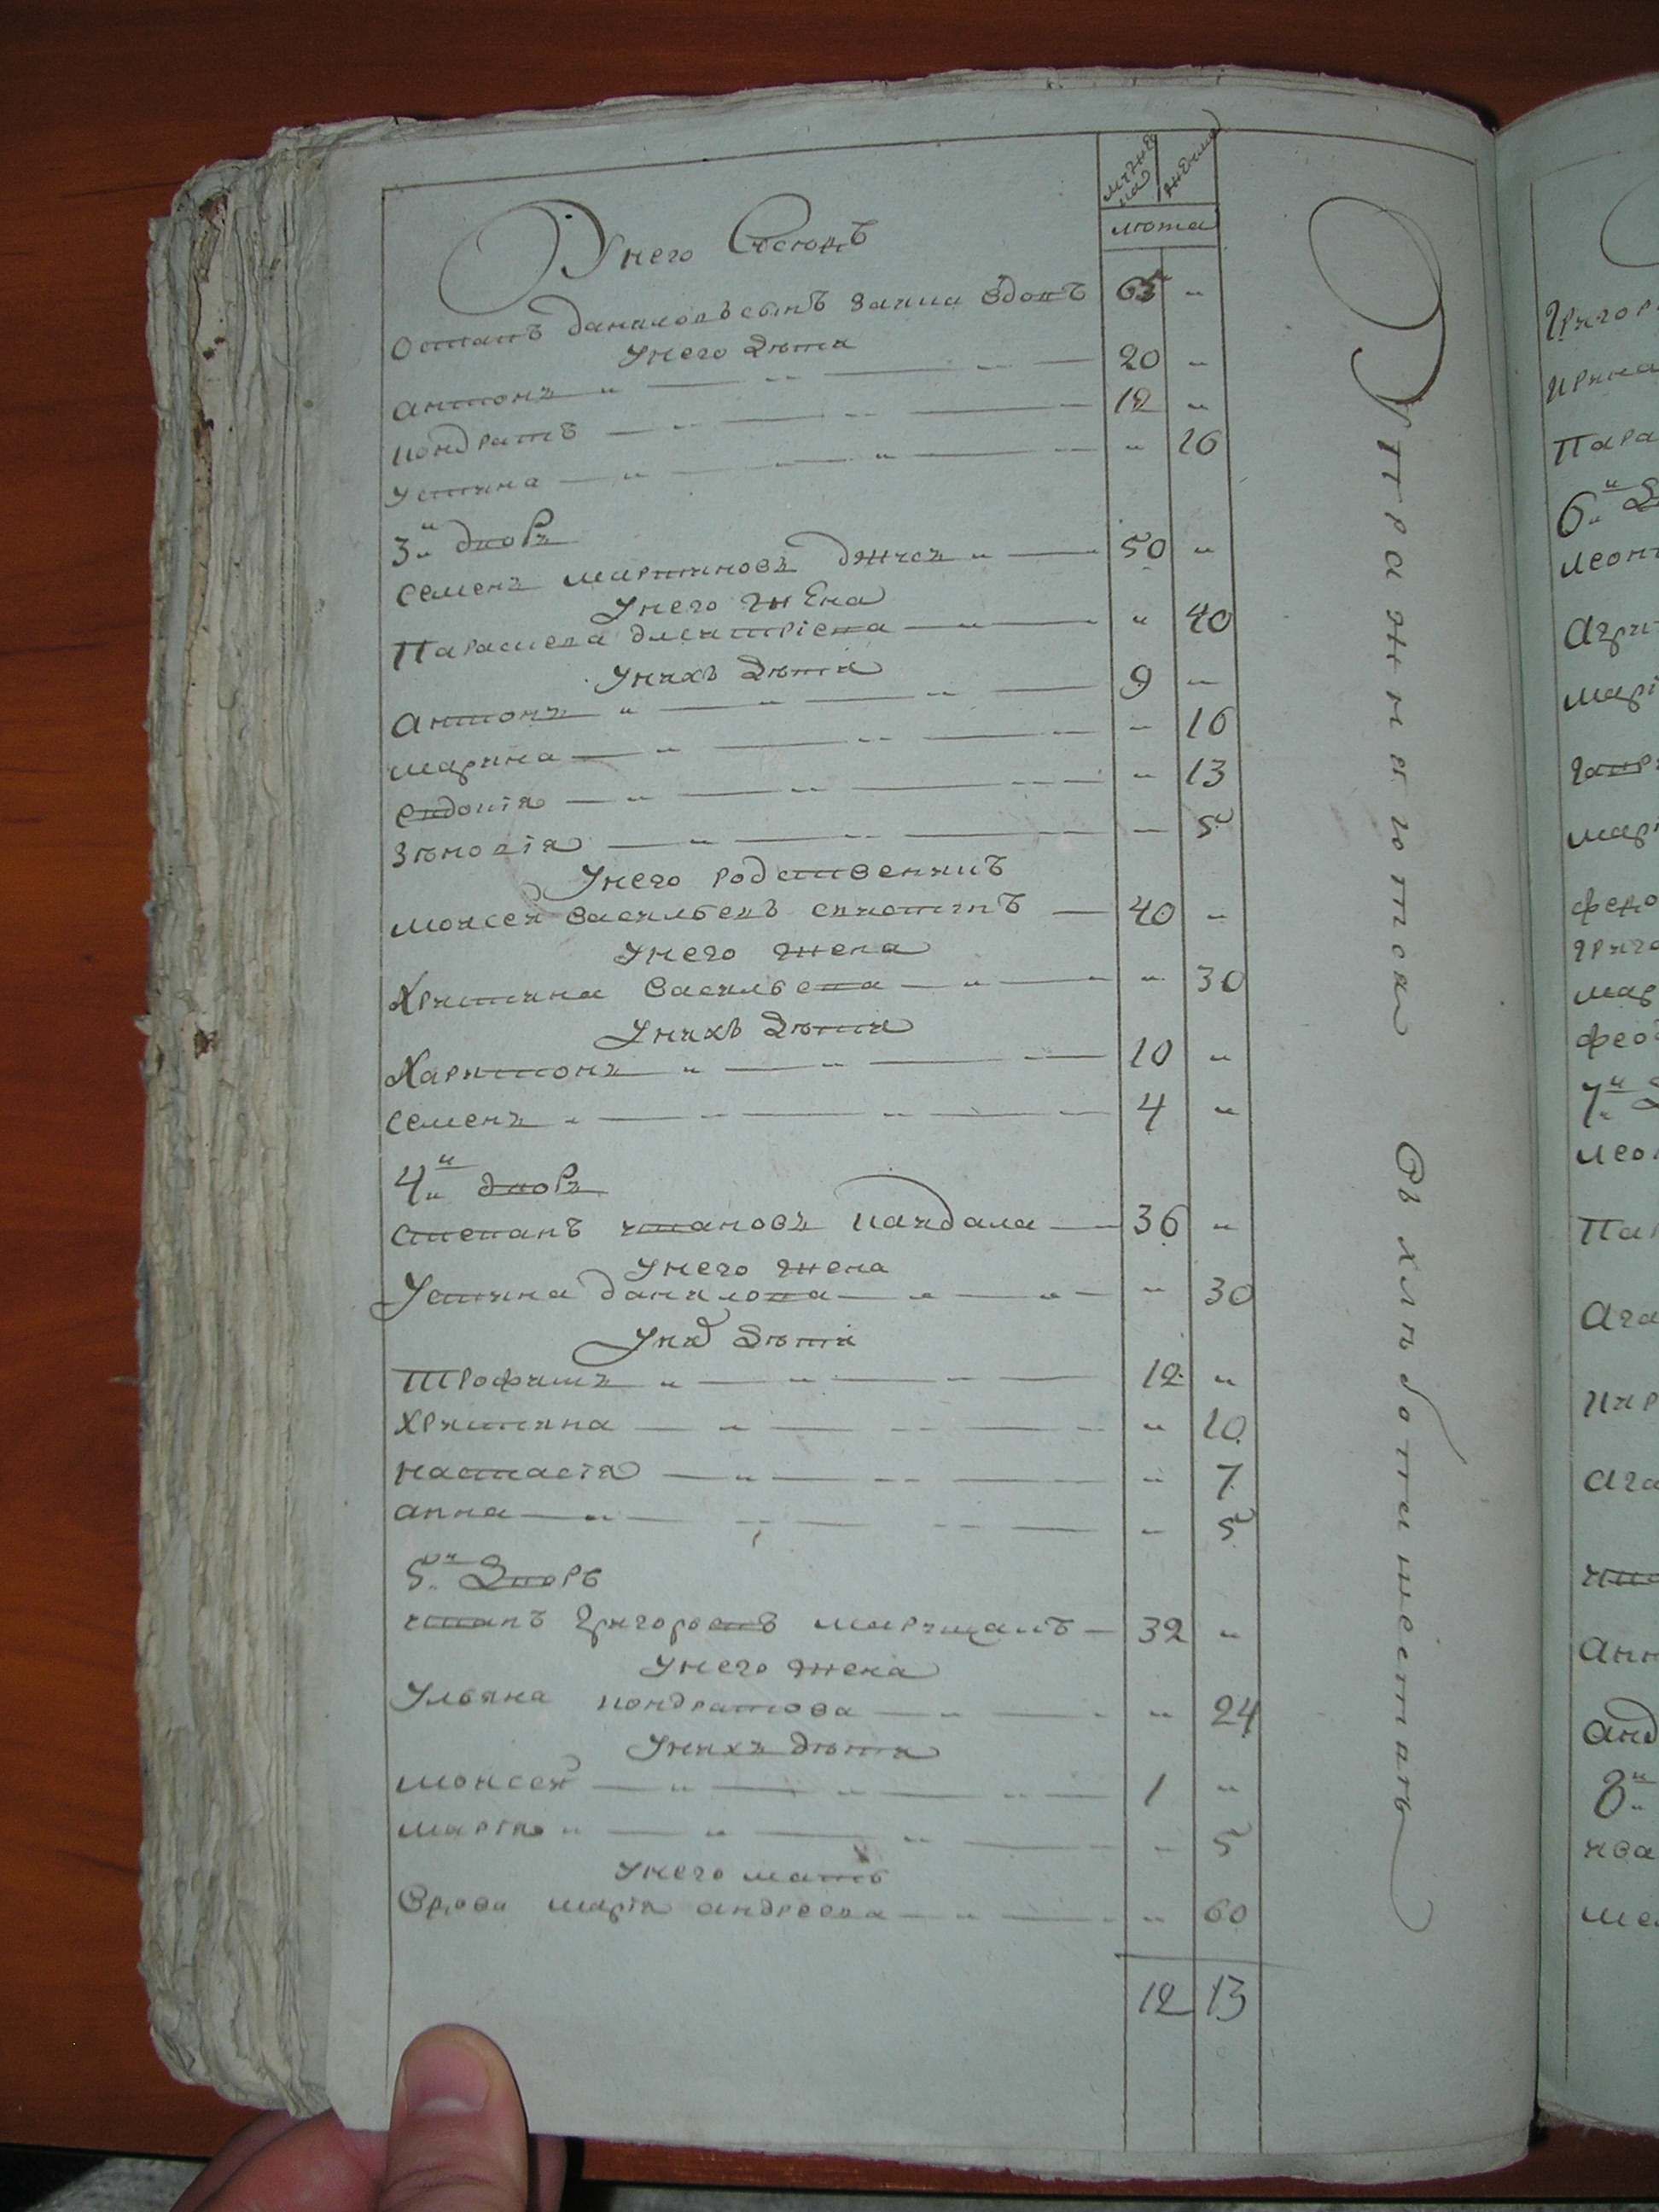 мужеска женска
лѣта
У него
Остапъ Даниловъ сынъ Заика вдовъ 65 „
У него дѣти
Антонъ „ — „ — „ — 20 „
Кондратъ — „ — „ — 12 „
Устина — „ — „ — „ 16
3й „ дворъ
Семенъ Мартиновъ „ — 50 „
У него жена
Параскева Дмитріева — „ — „ 40
У нихъ дѣти
Антонъ „ — „ — „ — 9 „
Марина — „ — „ — „ 16
Евдокія — „ — „ — „ 13
Зѣновія — „ — „ — — 5
У него родственникъ
Моисей Васильевъ — 40 „
У него жена
Христина Васильева — „ — „ 30
У нихъ дѣти
Харитонъ „ — „ — 10 „
Семенъ „ — „ — „ — 4 „
4й „ дворъ
Степанъ Ивановъ Кандала — 36 „
У него жена
Устина Данилова — „ — „ — „ 30
У них дѣти
Трофимъ „ — „ — „ — 12 „
Христина — „ — „ — „ 10
Настасія — „ — „ — „ 7
Анна — „ — „ — „ — „ 5
5й „ дворъ
Григоровъ — 32 „
У него жена
Ульяна Кондратова — „ — „ 24
У нихъ дѣти
Моисей — „ — „ — „ — 1 „
Марія „ — „ — „ — „ 5
У него мать
вдова Марія Андреева — „ — „ 60
12 13
Упражняются въ хлѣбопашествѣ
Григор
Ирина
Пара
6й „
Леон
Агри
Марі
Гавр
Мар
Фед
Григо
Мар
Фео
7й „
Лео
Пар
Ага
Кир
Ага
Анн
Анд
8й „
Ива